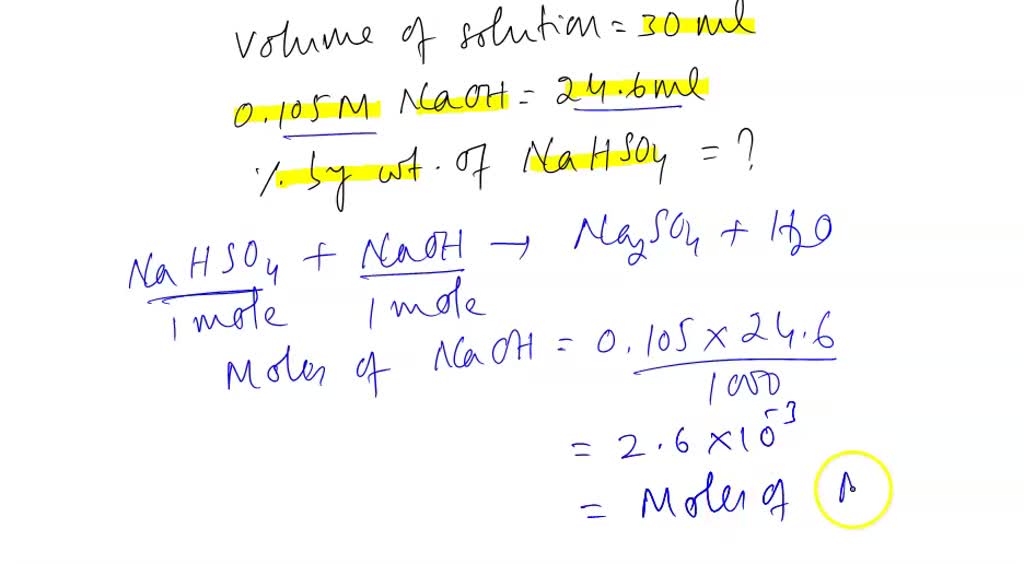 Volume of solution = 30 ml
0.105 M NaOH = 24.6 ml
% by wt. of NaHSO4 = ?
NaHSO4 + NaOH → Na2SO4 + H2O
1 mole 1 mole
Moles of NaOH = 0.105 × 24.6
1000
= 2.6 × 10-3
= Moles of